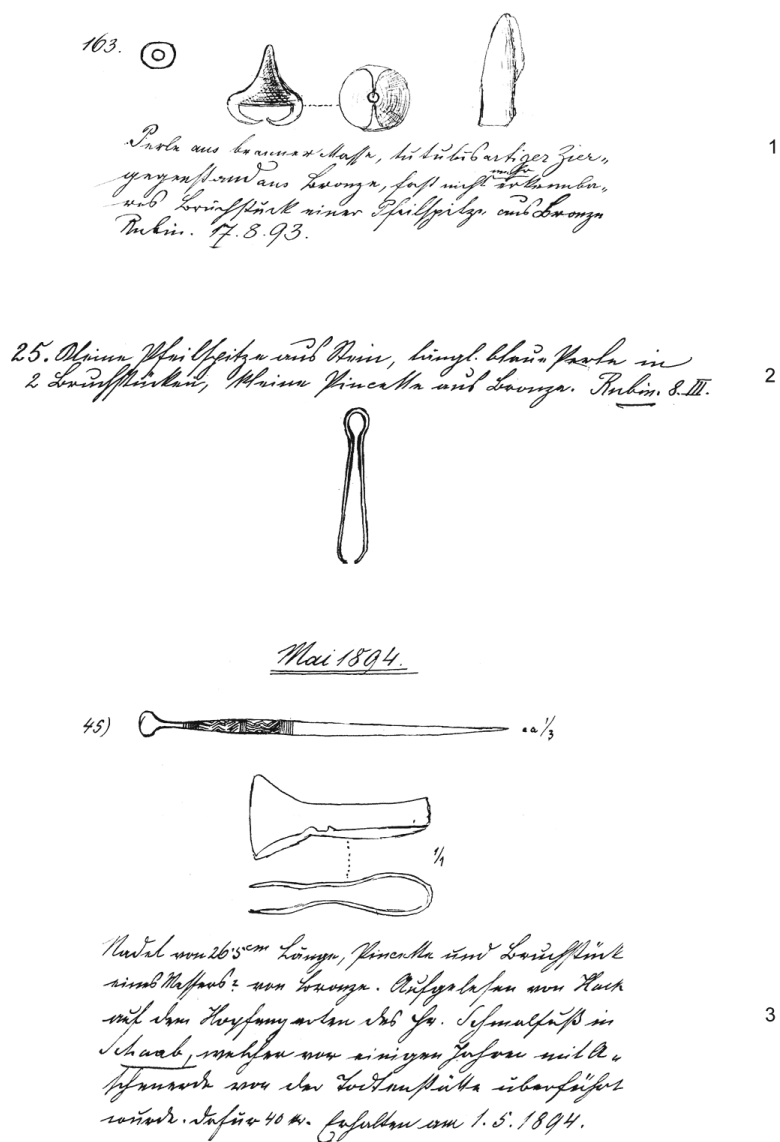 163.
Perle aus brauner Masse, tutulusartiger Zier-
gegenstand aus Bronze, fast nicht mehr erkennba-
res Bruchstück einer Pfeilspitze aus Bronze
Rubin. 17.8.93.
1
25. Kleine Pfeilspitze aus Stein, längl. blaue Perle in
2 Bruchstücken, kleine Pincette aus Bronze. Rubin. 8.III.
2
Mai 1894.
45)
ca 1/3
1/1
Nadel von 26·5cm Länge, Pincette und Bruchstück
eines Messers? von Bronze. Aufgelesen von Hack
auf dem Hopfengarten des Hr. Schmalfuß in
Schaab, welcher vor einigen Jahren mit A-
schenerde von der Todtenstätte überführt
wurde. Dafür 40 kr. Erhalten am 1.5.1894.
3